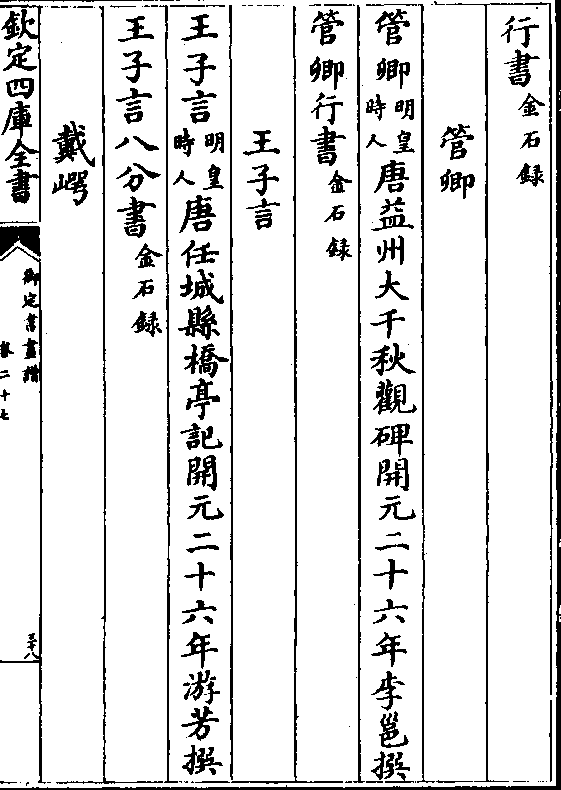 行書金石録
管卿
管卿明皇時人唐益州大千秋觀碑開元二十六年李邕撰
管卿行書金石録
王子言
王子言明皇時人唐任城縣橋亭記開元二十六年游芳撰
王子言八分書金石録
戴㟧
欽定四庫全書
御定書畫譜
卷二十七
三十八